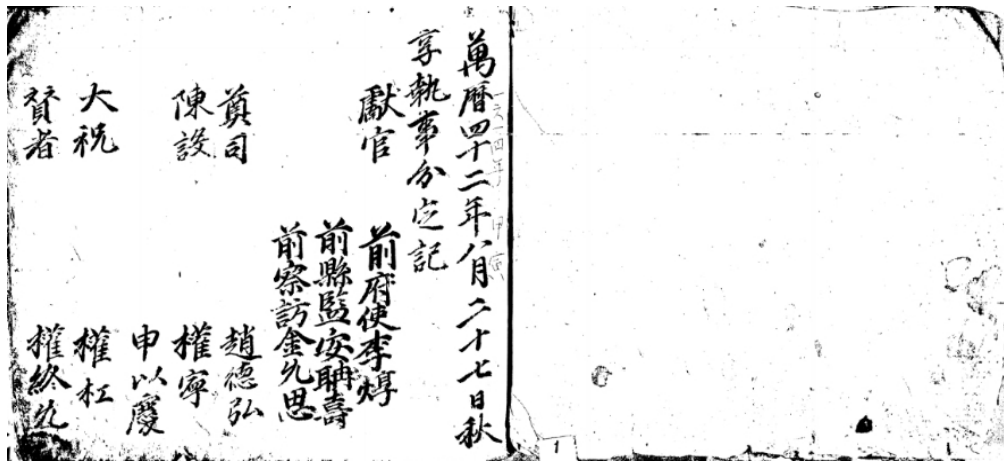 萬曆四十二年八月二十七日秋
享執事分定記
獻官 前府使李焞
前縣監安聃壽
前察訪金允思
奠司 趙德弘
陳設 權寧
申以慶
大祝 權杠
贊者 權終允
1